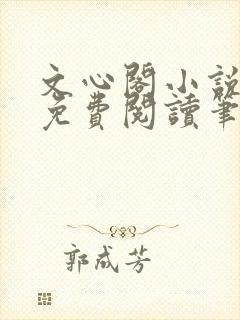 文心閣小說
免費閱讀筆
郭成芳